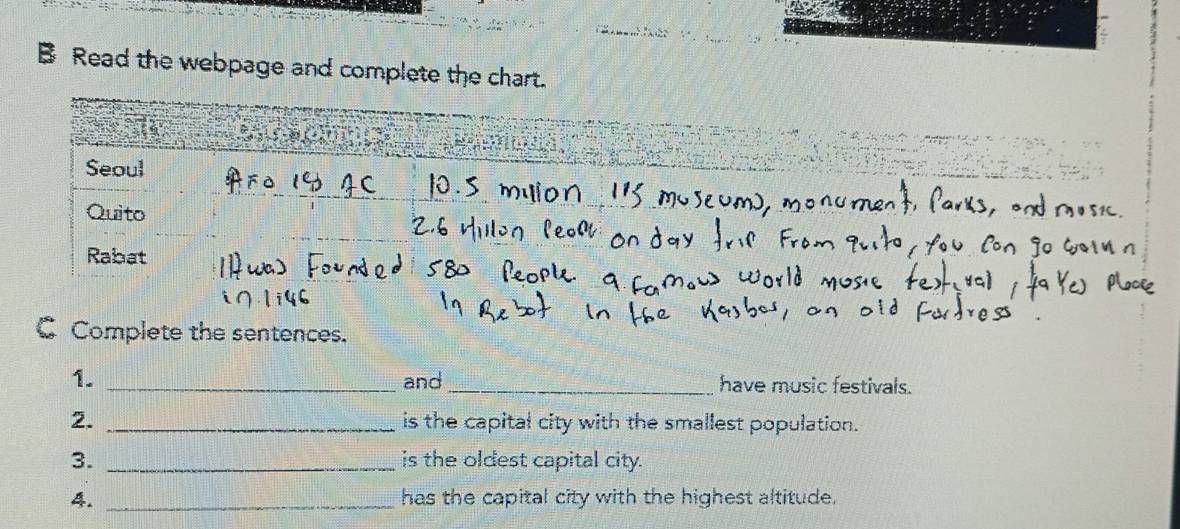 B Read the webpage and complete the chart.
Seoul
10.5 million 11s museums, monument, Parks, and music.
Quito
2.6 Million Peopl on day trip From quito, you Con go
Rabat
It was Founded 580 People. a famous world music festival, takes Place
in 1146
in Rebot in the Kasbas, an old Fortress.
C Complete the sentences.
1. and have music festivals.
2. is the capital city with the smallest population.
3. is the oldest capital city.
4. has the capital city with the highest altitude.